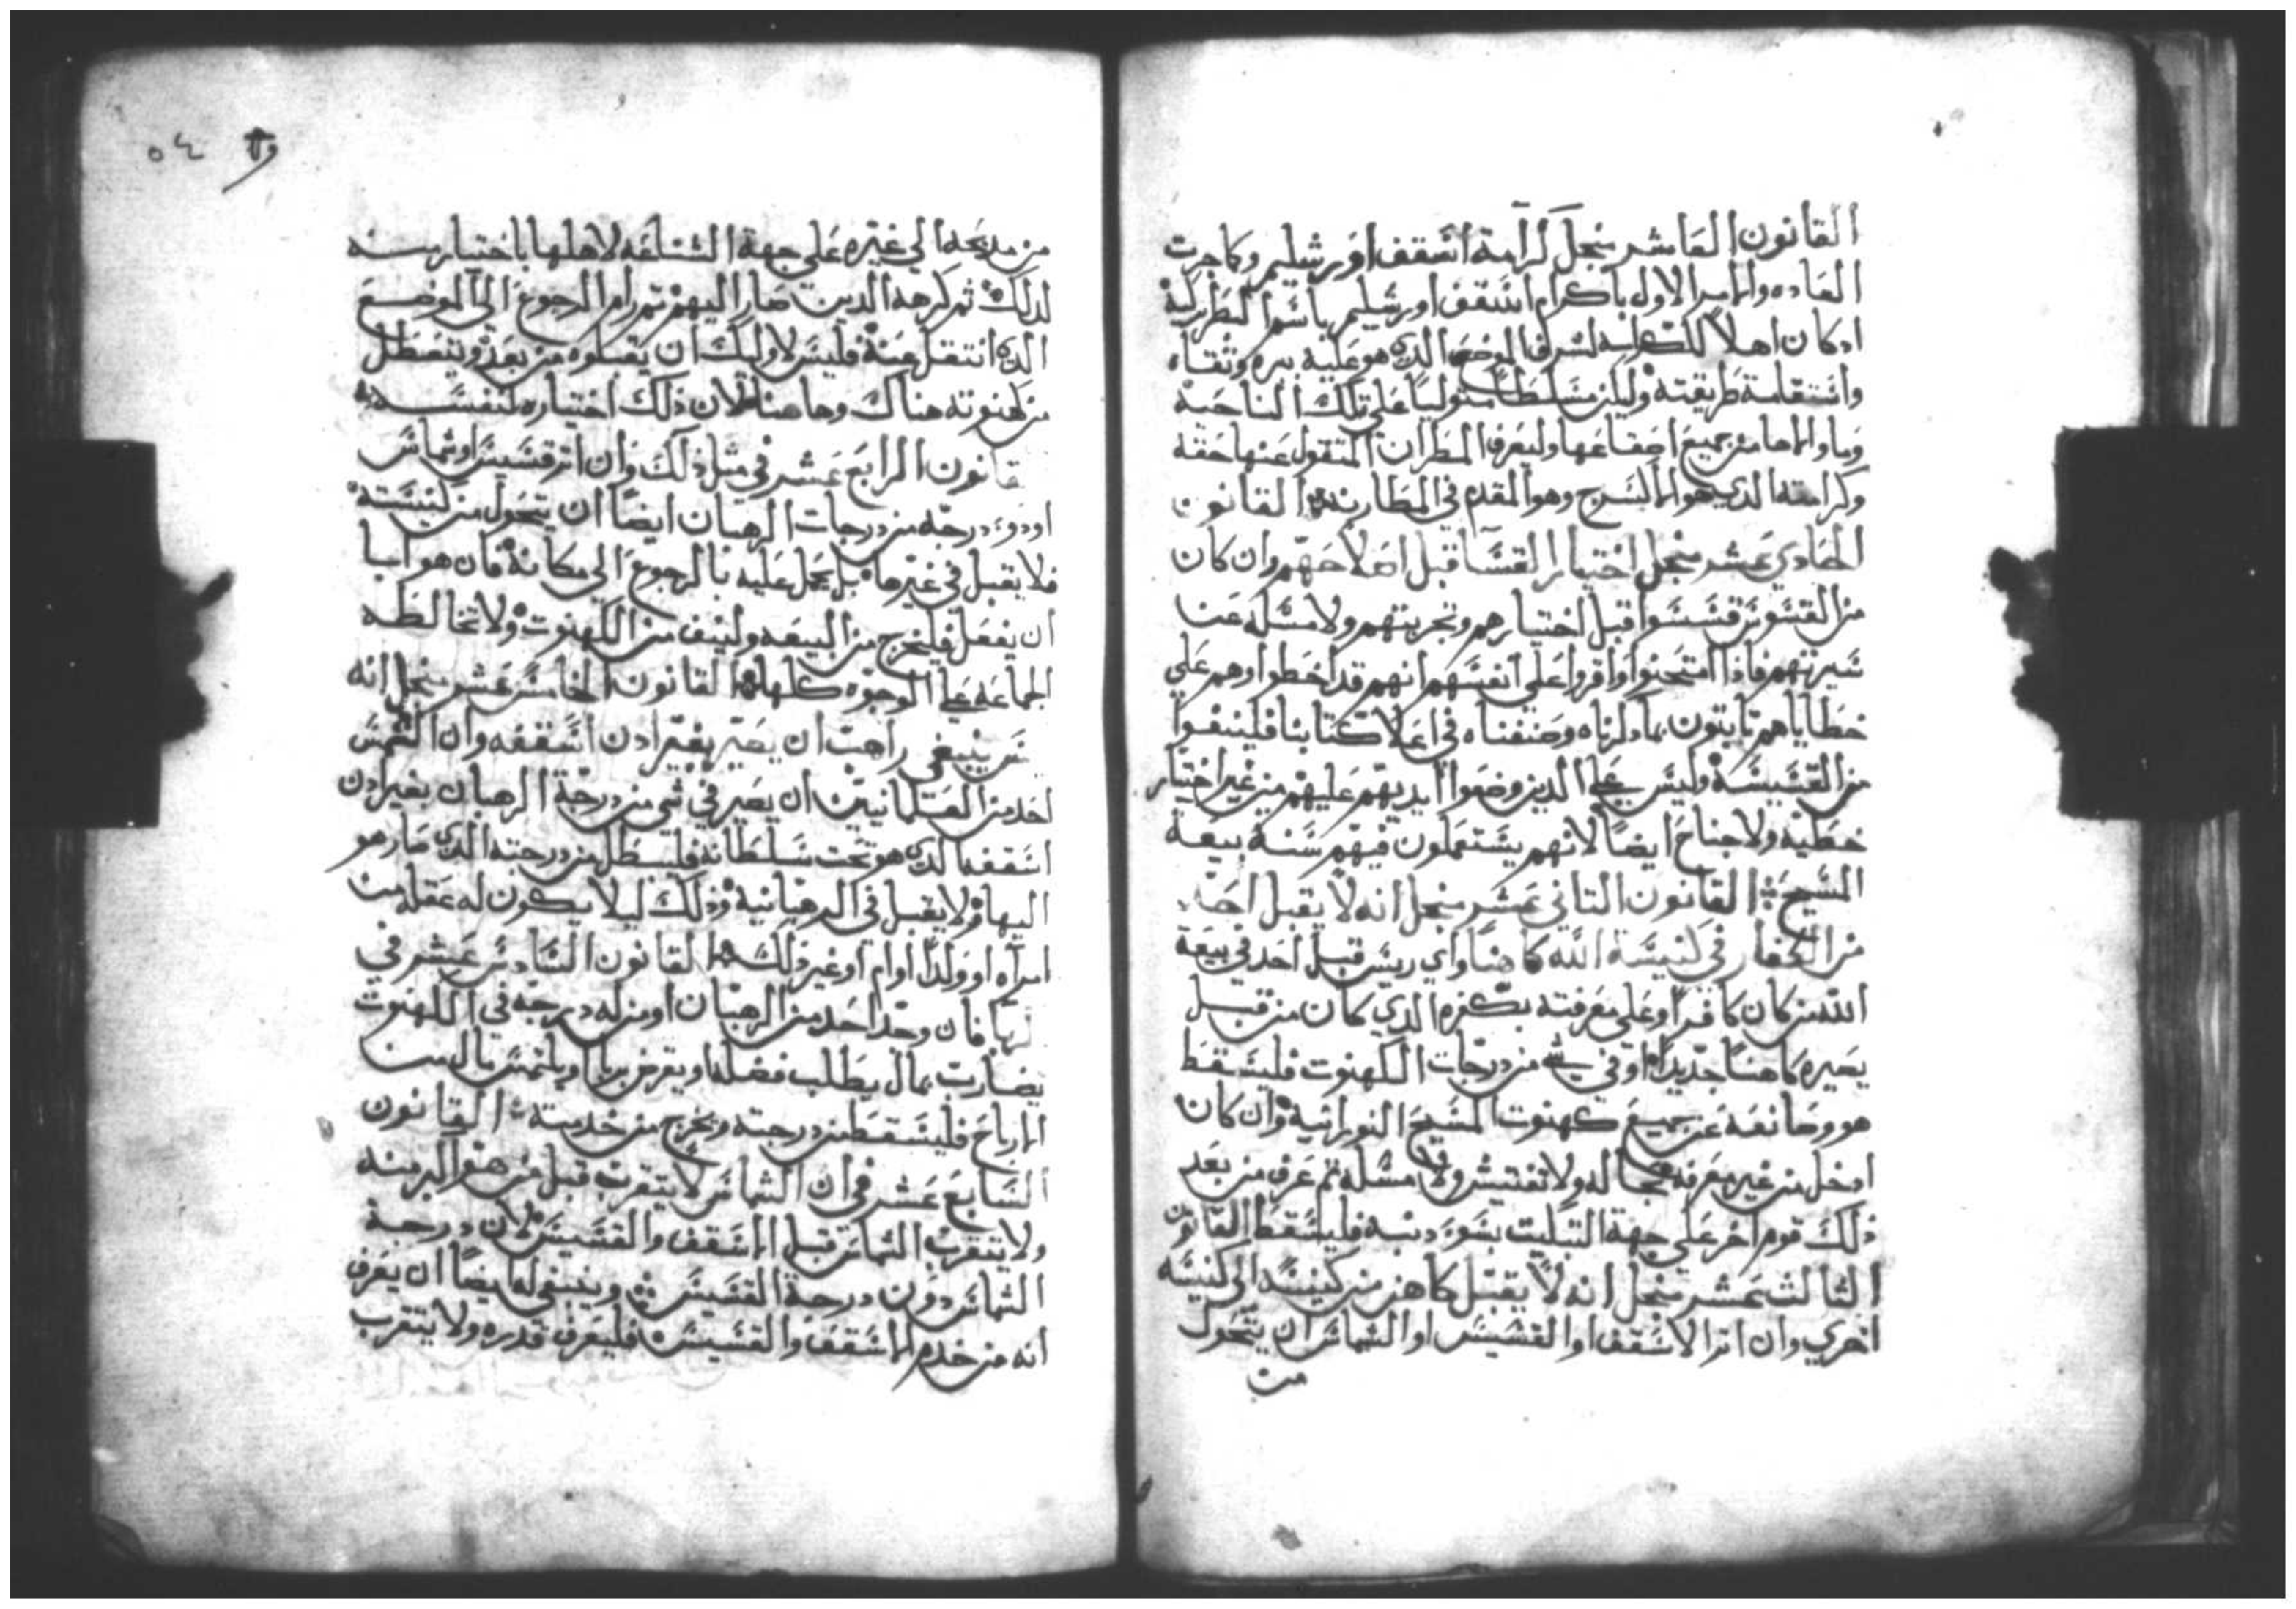 القانون العاشر منجل كرامة اسقف اورشليم وكما جرت
العاده والامر الاول باكرام اسقف اورشليم باسم البطريركية
اد كان اهلاً للكراسه لشرف الموضع الدي هو عليه بره وتقاه
واستقامة طريقته وليكن مسلطاً متولياً على تلك الناحية
وما والاها من جميع اصقاعها وليعرف المطران المنقول عنها حقه
وكرامته الدي هو وهو المقدم في المطارنه القانون
الحادي عشر منجل اختيار القسا قبل اصلاحهم وان كان
من القسو قسسوا قبل اختيارهم وتجربتهم ولا مسله عن
سيرتهم فاذا امتحنوا واقروا على انفسهم انهم قد اخطوا وهم على
خطاياهم تابتون بما دكرناه وصنفناه في اعلا كتابنا فلينفوا
من القسيسه وليس على الدين وضعوا ايديهم عليهم من غير اختيار
خطيه ولا جناح ايضاً لانهم يستعملون فيهم سنة بيعة
المسيح القانون التاني عشر منجل انه لا يقبل احد
من الكفار في كنيسة الله كاهناً واي ريس قبل احد في بيعة
الله من كان كافراً وعلى معرفته بكفره الدي كان من قبل
يصيره كاهناً جديداً او في شي من درجات الكهنوت فليسقط
هو وصانعه عن جميع كهنوت المسيح النورانية وان كان
ادخل من غير معرفه بحاله ولا تفتيش ولا مسله تم عرف من بعد
ذلك قوم اخر على جهة التبكيت بسوء دنبه فليسقط القانون
الثالث عشر منجل انه لا يقبل كاهن من كنيسه الى كنيسه
اخري وان اتر الاسقف او القسيس او الشماس ان يتحول
من
٥٤
من مديحه الي غيره على جهة الشناعه لاهلها باختيار منه
لدلك ثم كرهه الدين صار اليهم تم رام الرجوع الى الموضع
الدي انتقل عنه فليس لاوليك ان يقبلوه من بعد ويتعطل
من كهنوته هناك وهاهنا لان ذلك اختياره لنفسه
قانون الرابع عشر في مثل ذلك وان اتر قسيس او شماس
او دوء درجه من درجات الرهبان ايضاً ان يتحول من كنيسته
فلا يقبل في غيرها بل يحمل عليه بالرجوع الى مكانه فان هو ابا
ان يفعل فليخرج من البيعه ولينف من الكهنوت ولا تخالطه
الجماعه على الوجوه كلها القانون الخامس عشر منجل انه
ليس ينبغي راهب ان يصير بغير ادن اسقفه وان التمس
احد من العلمانيين ان يصير في شي من درجة الرهبان بغير ادن
اسقفه الدي هو تحت سلطانه فليبطل من درجته الدي صار هو
اليها ولا يقبل في الرهبانية وذلك ليلا يكون له عقله من
امراه او ولداً او ام او غير ذلك القانون السادس عشر في
الربا فان وجد احد من الرهبان او من له درجه في الكهنوت
يضارب بمال يطلب فضله او يقرض بربا او يلتمس مال من
الارباح فليسقط من درجته ويخرج من خدمته القانون
السابع عشر في ان الشماس لا يتقرب قبل من هو اكبر منه
ولا يتقرب الشماس قبل الاسقف والقسيس لان درجة
الشماس دون درجة القسيس وينبغي له ايضاً ان يعرف
انه من خدم الاسقف والقسيس فليعرف قدره ولا يتقرب